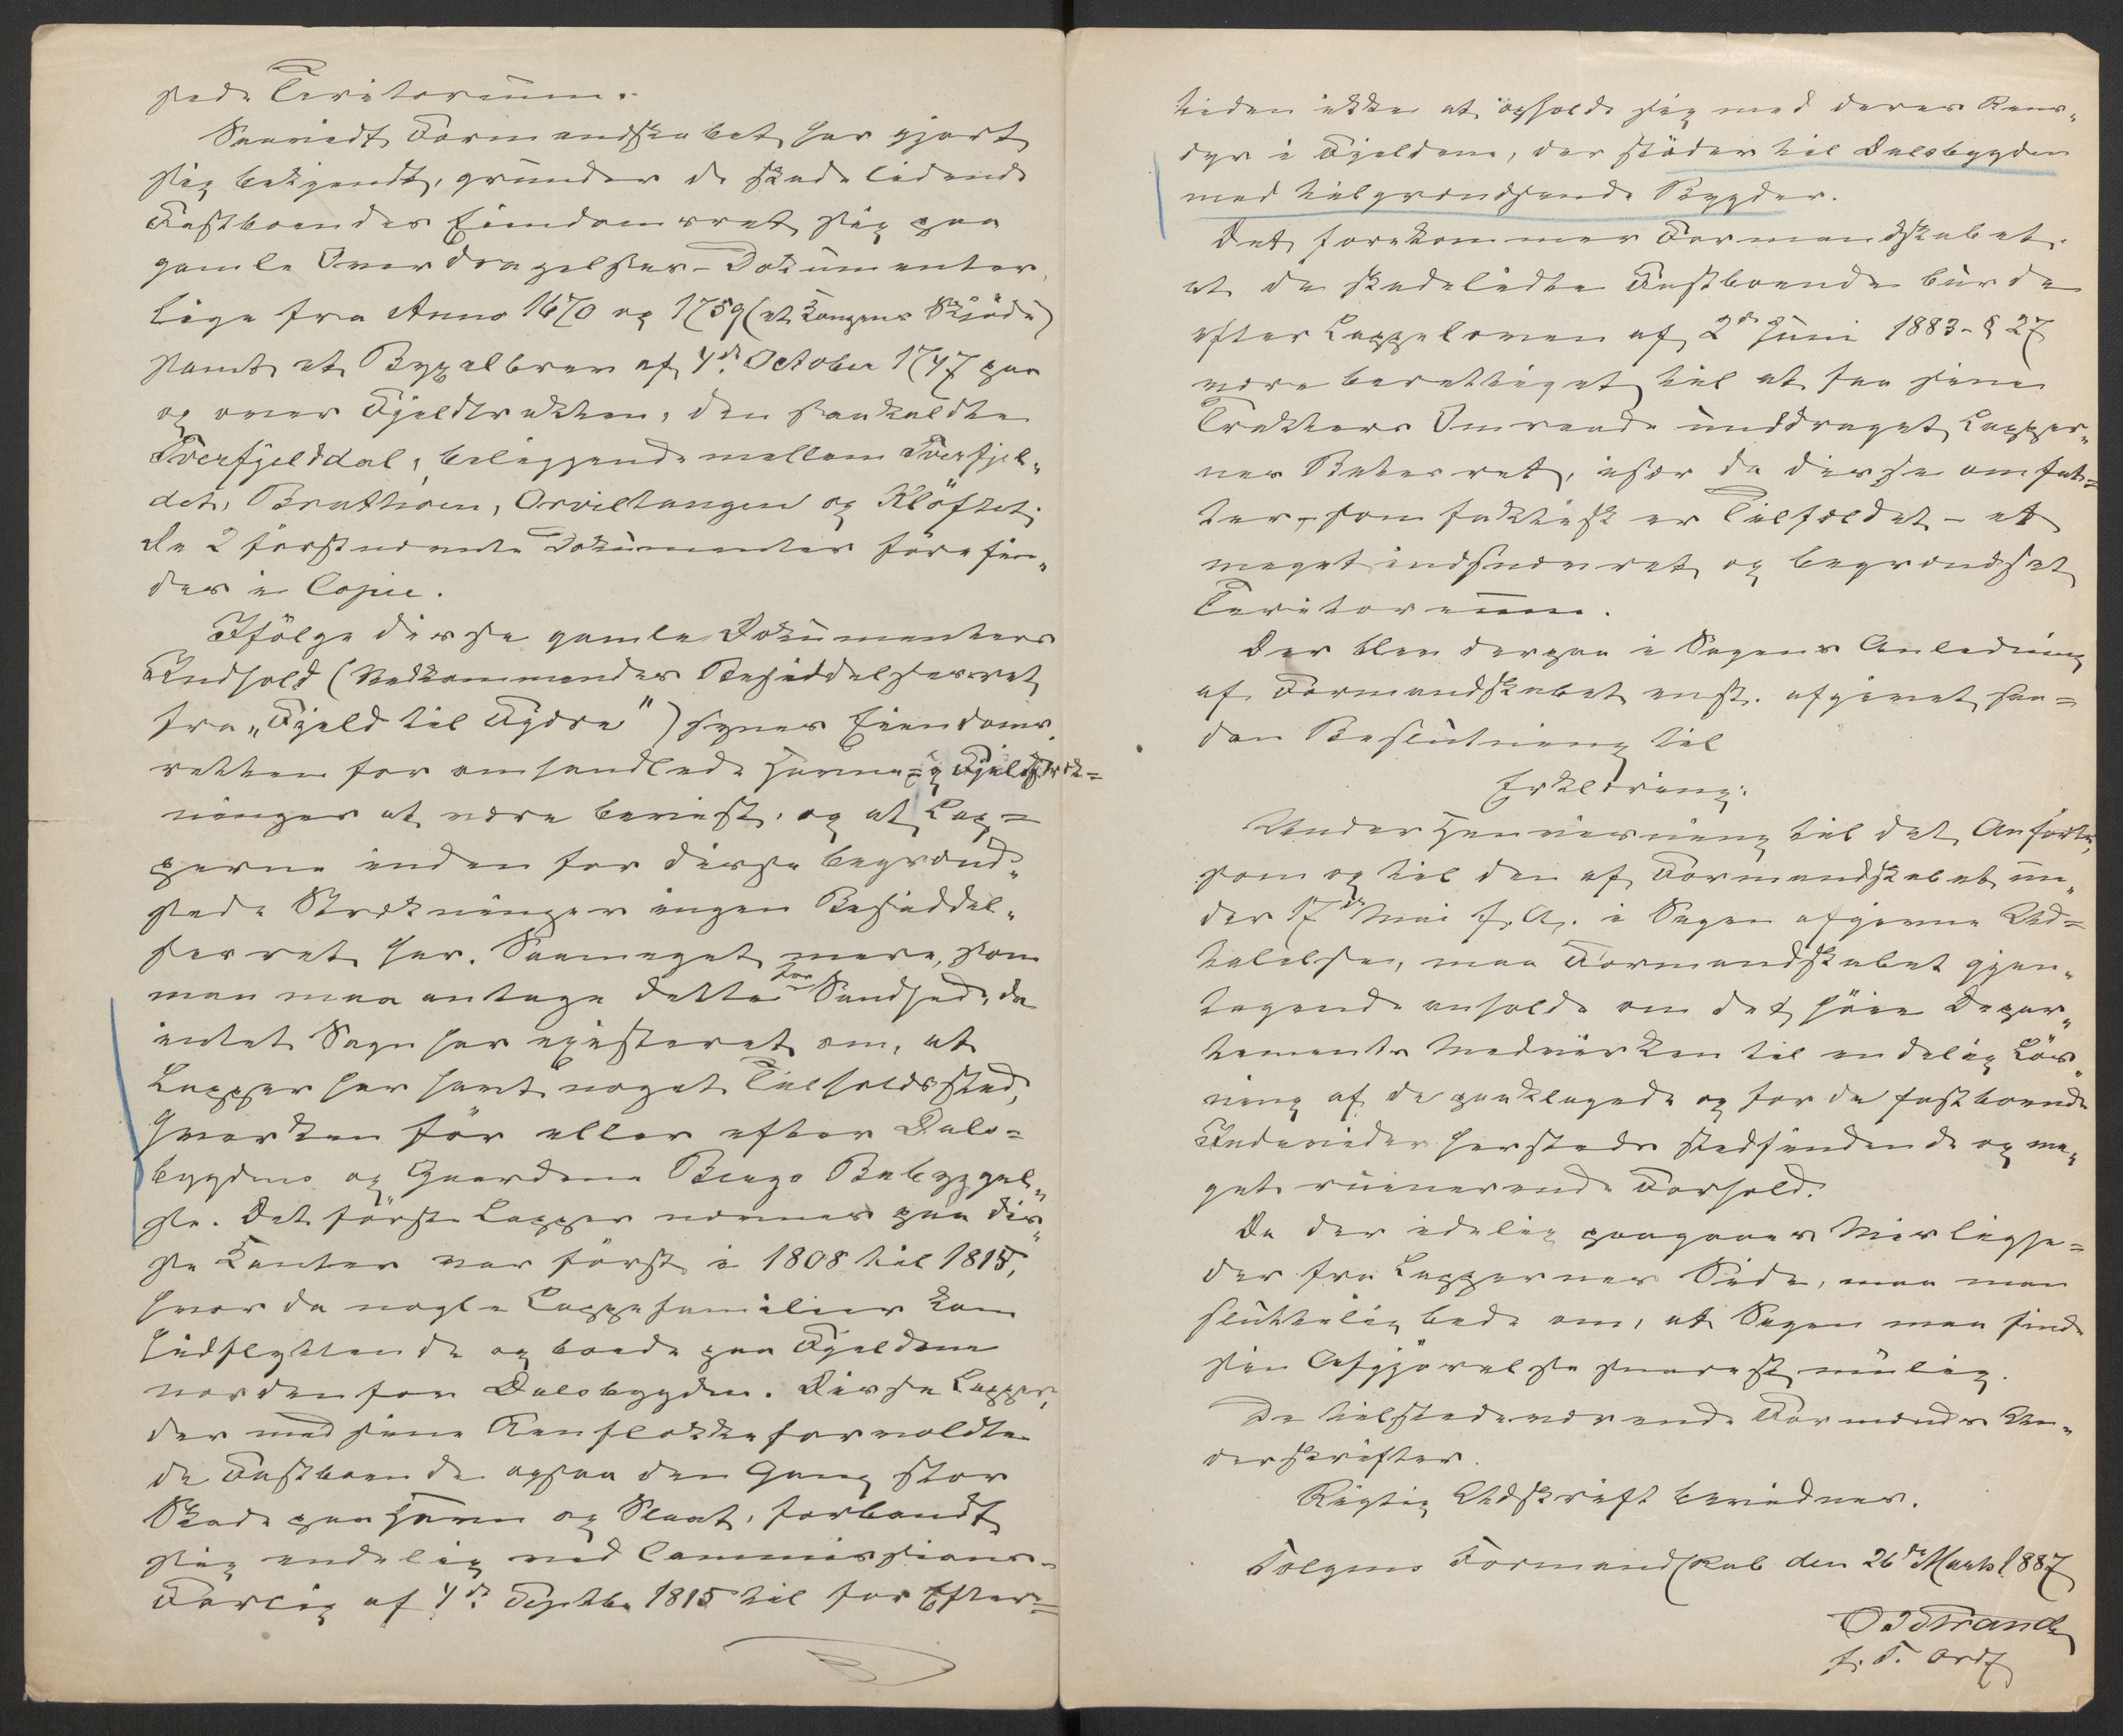 sede Teritorium.
Saavidt Formandskabet har gjort
sig bekjendt, grunder de skadelidende
Fastboendes Eiendomsret sig paa
gamle Overdragelses-Dokumenter,
lige fra Anno 1670 og 1759 (et Kongens Skjøde)
samt et Bygselbrev af 4de October 1747 paa
og over Fjeldtrakten, den saakaldte
Tverfjelddal, beliggende mellem Tverfjel-
det, Brathøen, Orviltangen og Kløftet;
de 2 førstnevnte Dokumenter forefin-
des i Copie.
Ifølge disse gamle Dokumenters
Indhold (Vedkommendes Besiddelsesret
fra „Fjeld til Fjære") synes Eiendoms-
retten for omhandlede Havne- og Fjeldstræk-
ninger at være bevist, og at Lap-
perne inden for disse begrænd-
sede Strækninger ingen Besiddel-
sesret har. Saameget mere, som
man maa antage dette for Sandhed, da
intet Sagn har existeret om, at
Lapper har havt noget Tilholdssted,
hverken før eller efter Dals-
bygdens og Gaardene Bengs Bebyggel-
se. Det første Lapper nævnes paa dis-
se Kanter var først i 1808 til 1815,
hvor da nogle Lappefamilier kom
hidflyttende og boede paa Fjeldene
nordenfor Dalsbygden. Disse Lapper,
der med sine Renflokke forvoldte
de Fastboende ogsaa den Gang stor
Skade paa Havn og Slaat, forbandt
sig endelig ved Commissions-
Forlig af 4de Septbr 1815 til for Efter-
tiden ikke at opholde sig med deres Rens-
dyr i Fjeldene, der støder til Dalsbygden
med tilgrændsende Bygder.
Det forekommer Formandskabet,
at de skadelidte Fastboende burde
efter Lappeloven af 2den Juni 1883 - § 27
være berettiget til at faa sine
Trakters Omraade unddraget Lapper-
nes Beitesret, især da disse omfat-
ter - som faktisk er Tilfældet - et
meget indsnevret og begrændset
Teritorium.
Der blev derpaa i Sagens Anledning
af Formandskabet enst. afgivet saa-
dan Beslutning til
Erklæring:
Under Henvisning til det Anførte,
som og til den af Formandskabet un-
der 17de Mai f. A. i Sagen afgivne Ud-
talelse, maa Formandskabet gjen-
tagende anholde om det høie Depar-
tements Medvirken til endelig Løs-
ning af de paaklagede og for de fastboende
Indevider herstede stedfindende og me-
get ruinerende Forhold.
Da der idelig paagaaer Mislighe-
der fra Lappernes Side, maa man
sluttelig bede om, at Sagen maa finde
sin Afgjørelse snarest mulig.
De tilstedeværende Formænds Un-
derskrifter.
Rigtig Udskrift bevidnes.
Tolgens Formandskab den 26de Marts 1887
O. Strand
f. T. Ordf